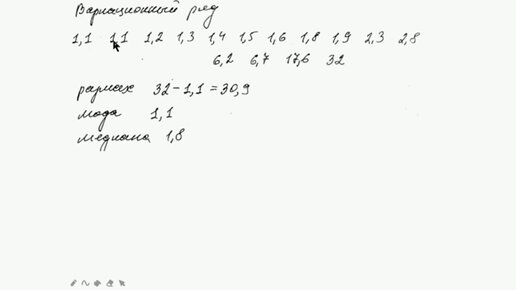 Вариационный ряд
1,1 1,1 1,2 1,3 1,4 1,5 1,6 1,8 1,9 2,3 2,8
6,2 6,7 17,6 32
размах 32-1,1=30,9
мода 1,1
медиана 1,8